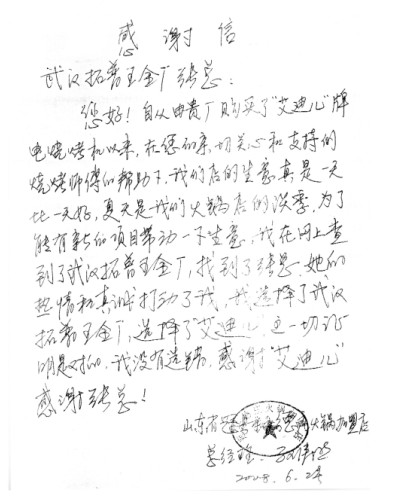 感谢信
武汉拓普王金厂张总:
您好!自从由贵厂购买了“艾迪儿”牌
电烧烤机以来,在您的亲切关心和支持的
烧烤师傅的帮助下,我们店的生意真是一天
比一天好,夏天是我们火锅店的淡季,为了
能有新的项目带动一下生意,我在网上查
到了武汉拓普王金厂,找到了张总,她的
热情和真诚打动了我,我选择了武汉
拓普王金厂,选择了“艾迪儿”这一切证
明是对的,我没有选错,感谢“艾迪儿”
感谢张总!
山东省 火锅加盟店
总经理:
2008.6.24